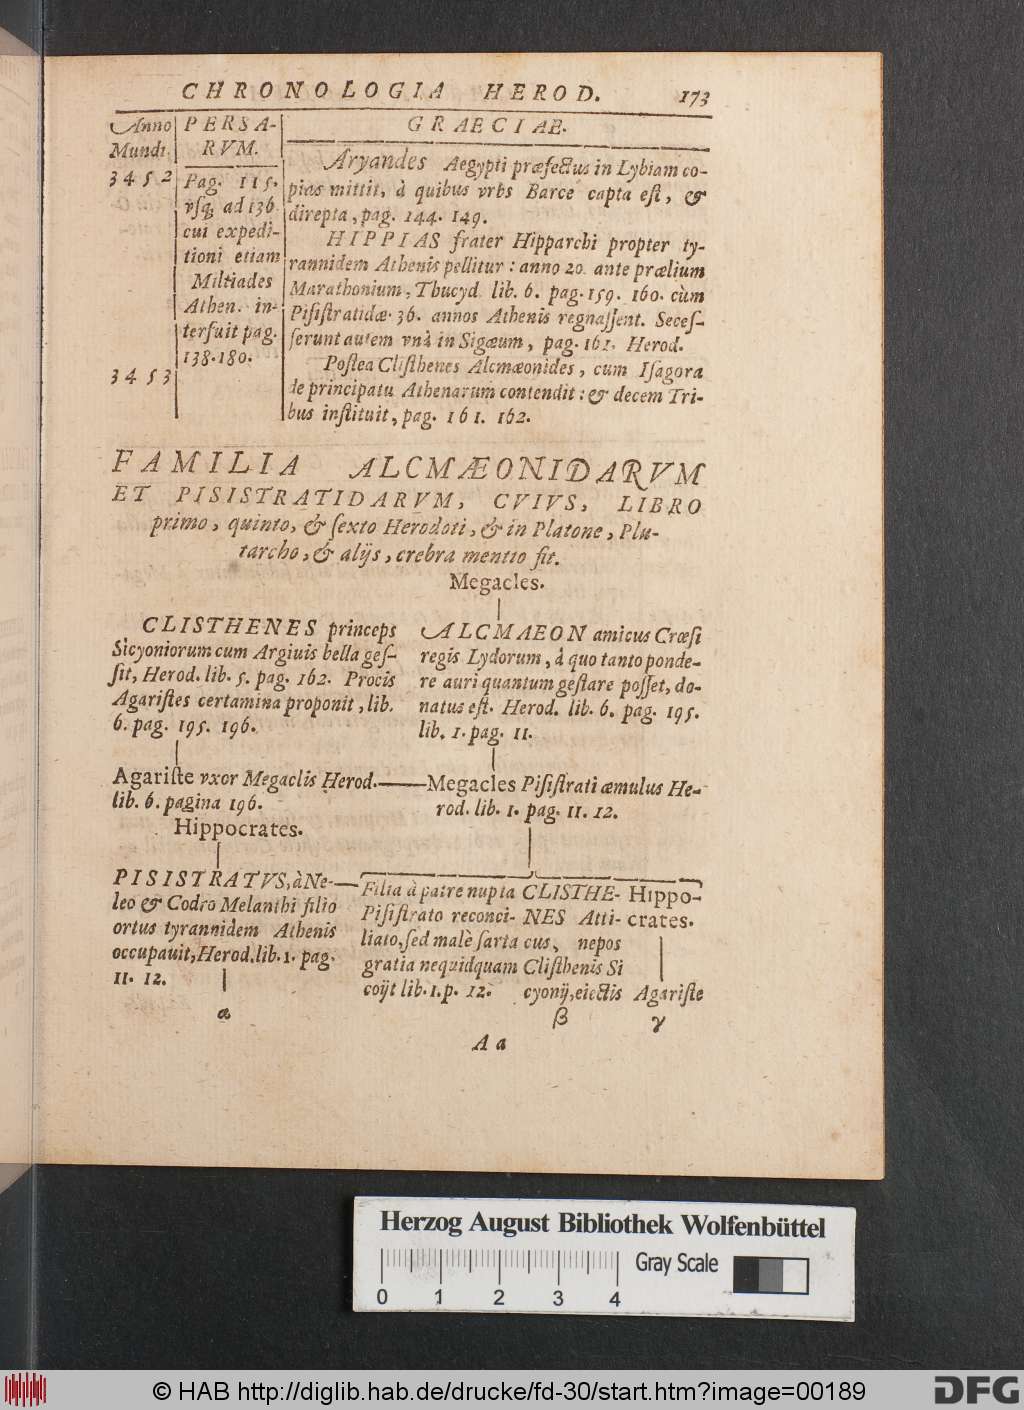 CHRONOLOGIA HEROD. 173
Anno
Mundi
3452
3453
PERSA-
RVM.
Pag. 115.
vsq; ad 136.
cui expedi-
tioni etiam
Miltiades
Athen. in-
terfuit pag.
138.180.
GRAECIAE.
Aryandes Aegypti præfectus in Lybiam co-
pias mittit, à quibus vrbs Barce capta est, &
direpta, pag. 144. 149.
HIPPIAS frater Hipparchi propter ty-
rannidem Athenis pellitur: anno 20. ante prælium
Marathonium, Thucyd. lib. 6. pag. 159. 160. cùm
Pisistratidæ 36. annos Athenis regnassent. Seces-
serunt autem vnà in Sigæum, pag. 161. Herod.
Postea Clisthenes Alcmæonides, cum Isagora
de principatu Athenarum contendit: & decem Tri-
bus instituit, pag. 161. 162.
FAMILIA ALCMÆONIDARVM
ET PISISTRATIDARVM, CVIVS, LIBRO
primo, quinto, & sexto Herodoti, & in Platone, Plu-
tarcho, & alijs, crebra mentio fit.
Megacles.
CLISTHENES princeps
Sicyoniorum cum Argiuis bella ges-
sit, Herod. lib. 5. pag. 162. Procis
Agaristes certamina proponit, lib.
6. pag. 195. 196.
ALCMAEON amicus Crœsi
regis Lydorum, à quo tanto ponde-
re auri quantum gestare posset, do-
natus est. Herod. lib. 6. pag. 195.
lib. 1. pag. 11.
Agariste vxor Megaclis Herod.
lib. 6. pagina 196.
Megacles Pisistrati æmulus He-
rod. lib. 1. pag. 11. 12.
Hippocrates.
PISISTRATVS, à Ne-
leo & Codro Melanthi filio
ortus tyrannidem Athenis
occupauit, Herod. lib. 1. pag.
11. 12.
α
Filia à patre nupta
Pisistrato reconci-
liato, sed malè sarta
gratia nequidquam
coijt lib. 1. p. 12.
CLISTHE-
NES Atti-
cus, nepos
Clisthenis Si
cyonij, eiectis
β
Hippo-
crates.
Agariste
γ
A a
Herzog August Bibliothek Wolfenbüttel
Gray Scale
0 1 2 3 4
© HAB http://diglib.hab.de/drucke/fd-30/start.htm?image=00189
DFG